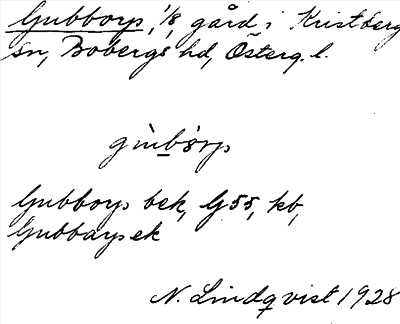 Gubborp, 1/8, gård i Kristberg
sn, Bobergs hd, Österg. l.
gùbòrp
Gubborp bek, G55, kb,
Gubbarp ek
N. Lindqvist 1928